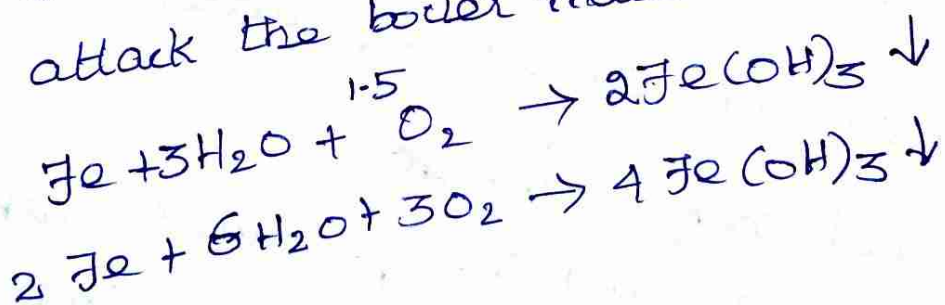 attack the boiler
Fe + 3H₂O + 1.5 O₂ → 2Fe(OH)₃ ↓
2 Fe + 6H₂O + 3O₂ → 4 Fe(OH)₃ ↓